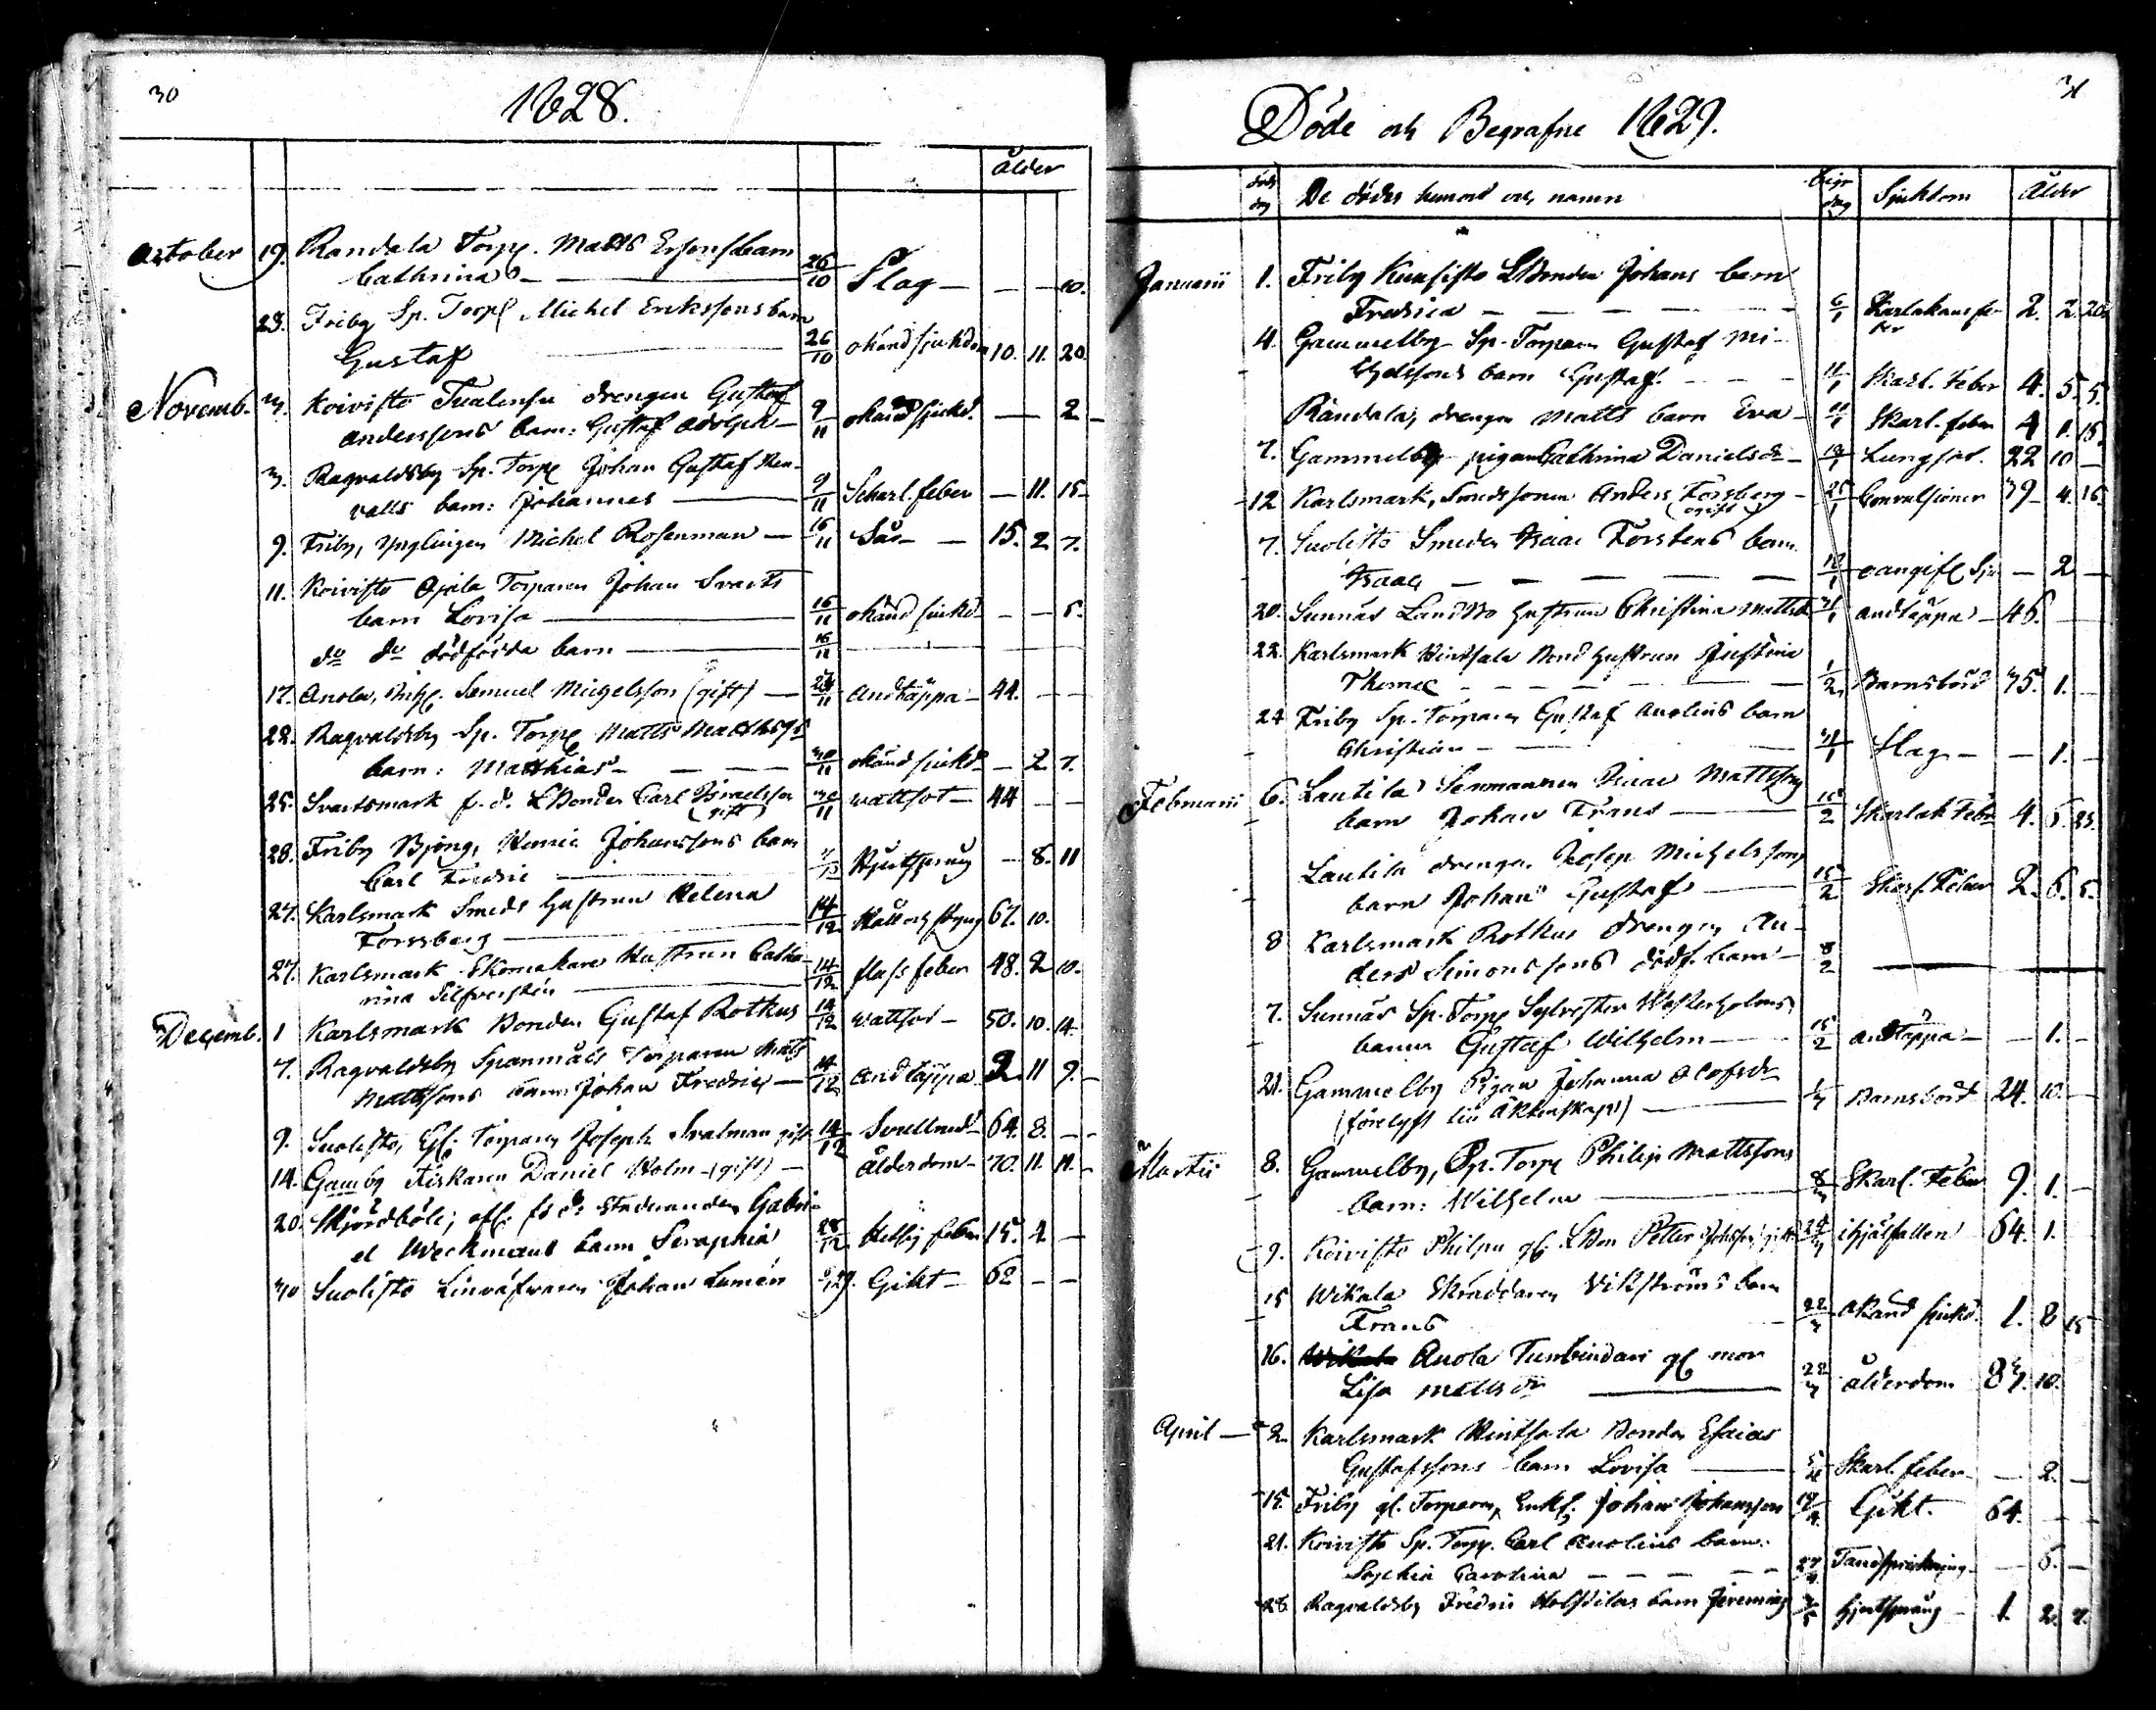 30
1828.
Ålder
October 19. Randala Torp. Matts Ersons barn
Cathrina 26/10 Slag 10.
23. Friby Sp. Torp Michel Erikssons barn
Gustaf 26/10 okänd sjukdom 10. 11. 20.
Novemb. 3. Koivisto drengen Gustaf
Anderssons barn: Gustaf Adolph 9/11 okänd sjukd. 2
3. Ragvaldsby Sp. Torp Johan Gustaf Ren-
valls barn: Johannes 9/11 Scharl. feber 11. 15
9. Friby, Ynglingen Michel Rosenman 16/11 Sår 15. 2. 7.
11. Koivisto Ojala Torparen Johan Svarts
barn Lovisa 16/11 okänd sjukd 5.
do do dödfödda barn 16/11
17. Anola, Inh. Samuel Migelsson (gift) /11 Andtäppa 44.
22. Ragvaldsby Sp. Torp Matts
barn: Matthias 30/11 okänd sjukd 2. 7.
25. Svartsmark f.d. LBonden Carl Israelsson
(gift) 30/11 wattsot 44
28. Friby Björng, Johanssons barn
Carl Fredric 8. 11
27. Karlsmark Smeds Hustrun Helena
Forssberg 14/12 Håll och styng 67. 10.
27. Karlsmark Skomakare Hustrun Catha-
rina Silfversten 14/12 feber 48. 2 10.
Decemb. 1 Karlsmark Bonden Gustaf Rotkus 14/12 wattsot 50. 10. 14.
7. Ragvaldsby Spanmåls Torparen Matts
Mattssons barn Johan Fredric 14/12 Andtäppa 2. 11 9.
9. Suolisto, Torparen Joseph Svalman gift 14/12 64. 8.
14. Gamby Fiskaren Daniel Holm (gift) ålderdom 70. 11. 11.
20. Skjördböle, Gabri-
el Weckmans barn Seraphia 28/12 Hetsig feber 15. 2
30 Suolisto Linväfvaren Johan Lumén Gikt 62
31
Döde och Begrafne 1829.
döds dag De dödes hemort och namn begr dag Sjukdom Ålder
Januarii 1. Friby Kunsisto LBonden Johans barn
Fredrica 6/1 Skarlakans fe-
ber 2. 2. 20.
4. Gammelby Sp. Torparen Gustaf Mi-
chelssons barn Gustaf. 11/1 Skarl. Feber 4. 5. 5.
Råndala, drengen Matts barn Eva 11/1 Skarl. feber 4 1. 15.
7. Gammelby pigan Cathrina Danielsdr 18/1 Lungsot. 22 10
12 Karlsmark, Smedssonen Anders Forsberg
(ogift) 25/1 Convulsioner 39 4. 16.
7. Suolisto Smeden Isaac Forstens barn
Isaac 18/1 oangifl Sju 2
20. Sunnäs Landbo Hustrun Christina Mattsdr Andtäppa 46.
22. Karlsmark Hintsala Bond Hustrun Justina
1/2 Barnsbörd 35. 1.
24 Friby Sp. Torparen Gustaf Anolins barn
Christian Slag 1.
Februarii 6. Lautila Isaac Mattssons
barn Johan Frans 15/2 Skarlak Feber 4. 6. 23.
Lautila drengen Josep Michelssons
barn Johan Gustaf 15/2 Skarl. Feber 2. 6. 5.
8 Karlsmark Rotkus drengen An-
ders Simonssons dödf. barn 8/2
7. Sunnäs Sp. Torp Sylvester Westerholms
barn Gustaf Wilhelm 15/2 Andtäppa 1.
21. Gammelby Pigan Johanna Olofsdr
(förelyft till Äktenskap) 1/3 Barnsbörd 24. 10.
Martii 8. Gammelby, Sp. Torp Philip Mattssons
barn: Wilhelm 8/3 Skarl. Feber 9. 1.
9. Koivisto Philpu gl. LBon Petter gift ihjälfallen 64. 1.
15 Wikala Skräddaren Vikströms barn
Frans 22/3 okänd sjukd. 1. 8 15
16. Anola Tunbindari gl mor
Lisa Mattsdr 22/3 ålderdom 83. 10.
April 2. Karlsmark Hintsala Bonden Esaias
Gustafssons barn Lovisa 5/4 Skarl. feber 2.
15. Friby gl. Torparen, Enkl. Johan Johansson 19/4 Gikt. 64.
21. Koivisto Sp. Torp. Carl Anolins barn
Sophia Carolina Tandsprickning 6.
26 Ragvaldsby Fredric barn 3/5 hjertsprång 1. 2. 7.